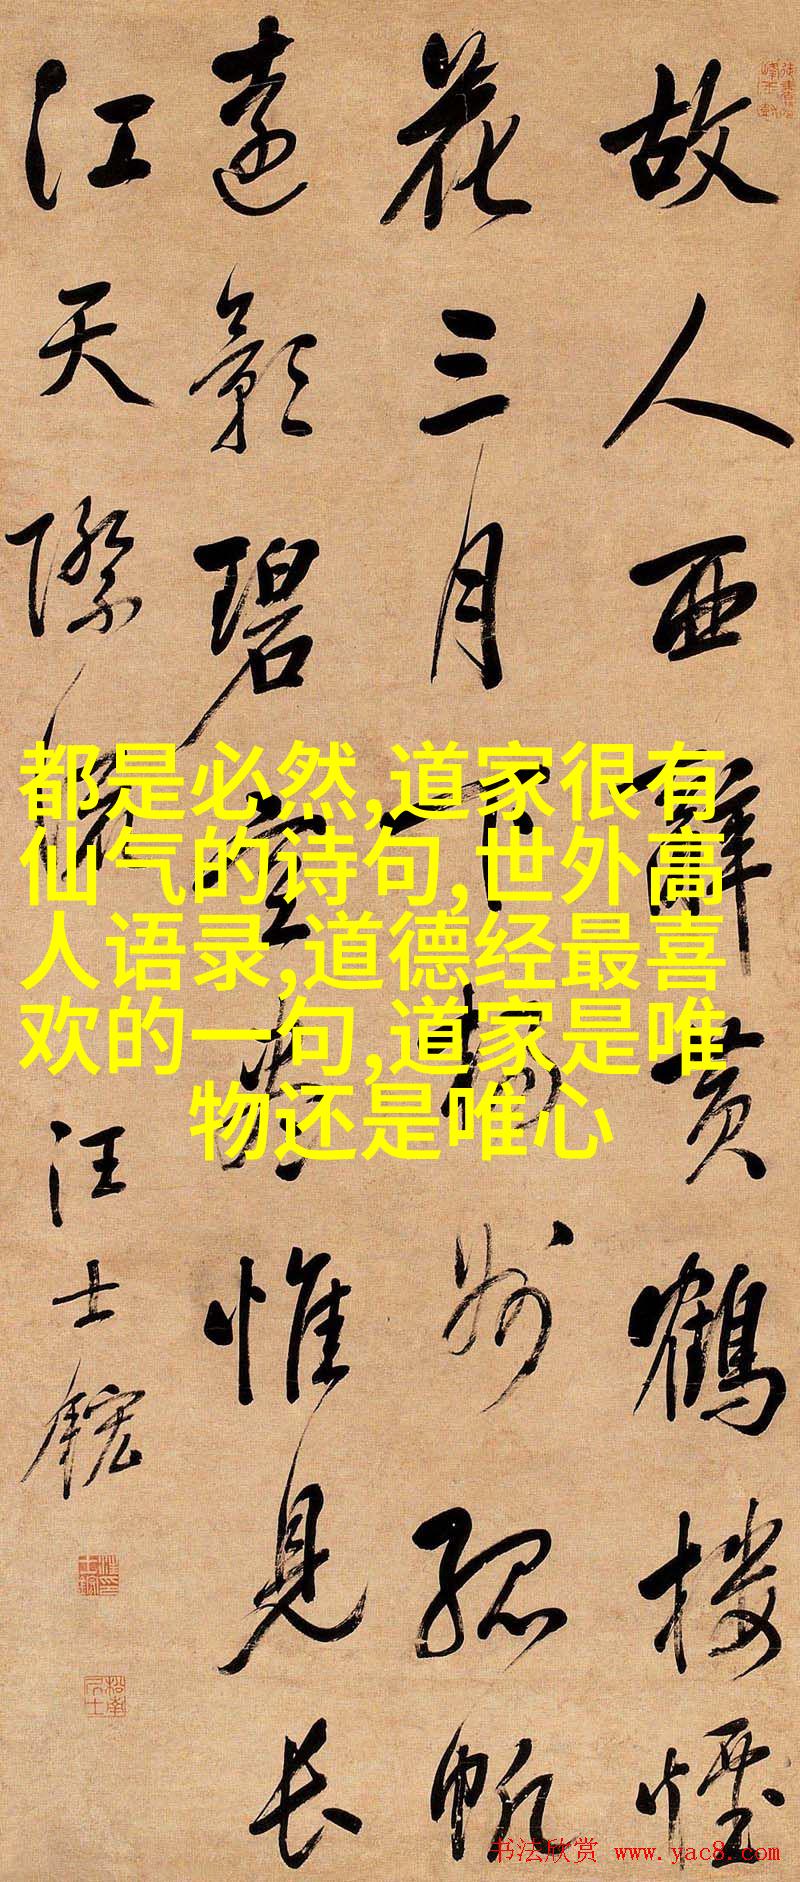 故人西辭黄鶴樓煙
花三月下揚州孤帆
遠影碧空盡惟見長
江天際流
汪士鋐
都是必然,道家很有
仙气的诗句,世外高
人语录,道德经最喜
欢的一句,道家是唯
物还是唯心
书法欣赏 www.yac8.com